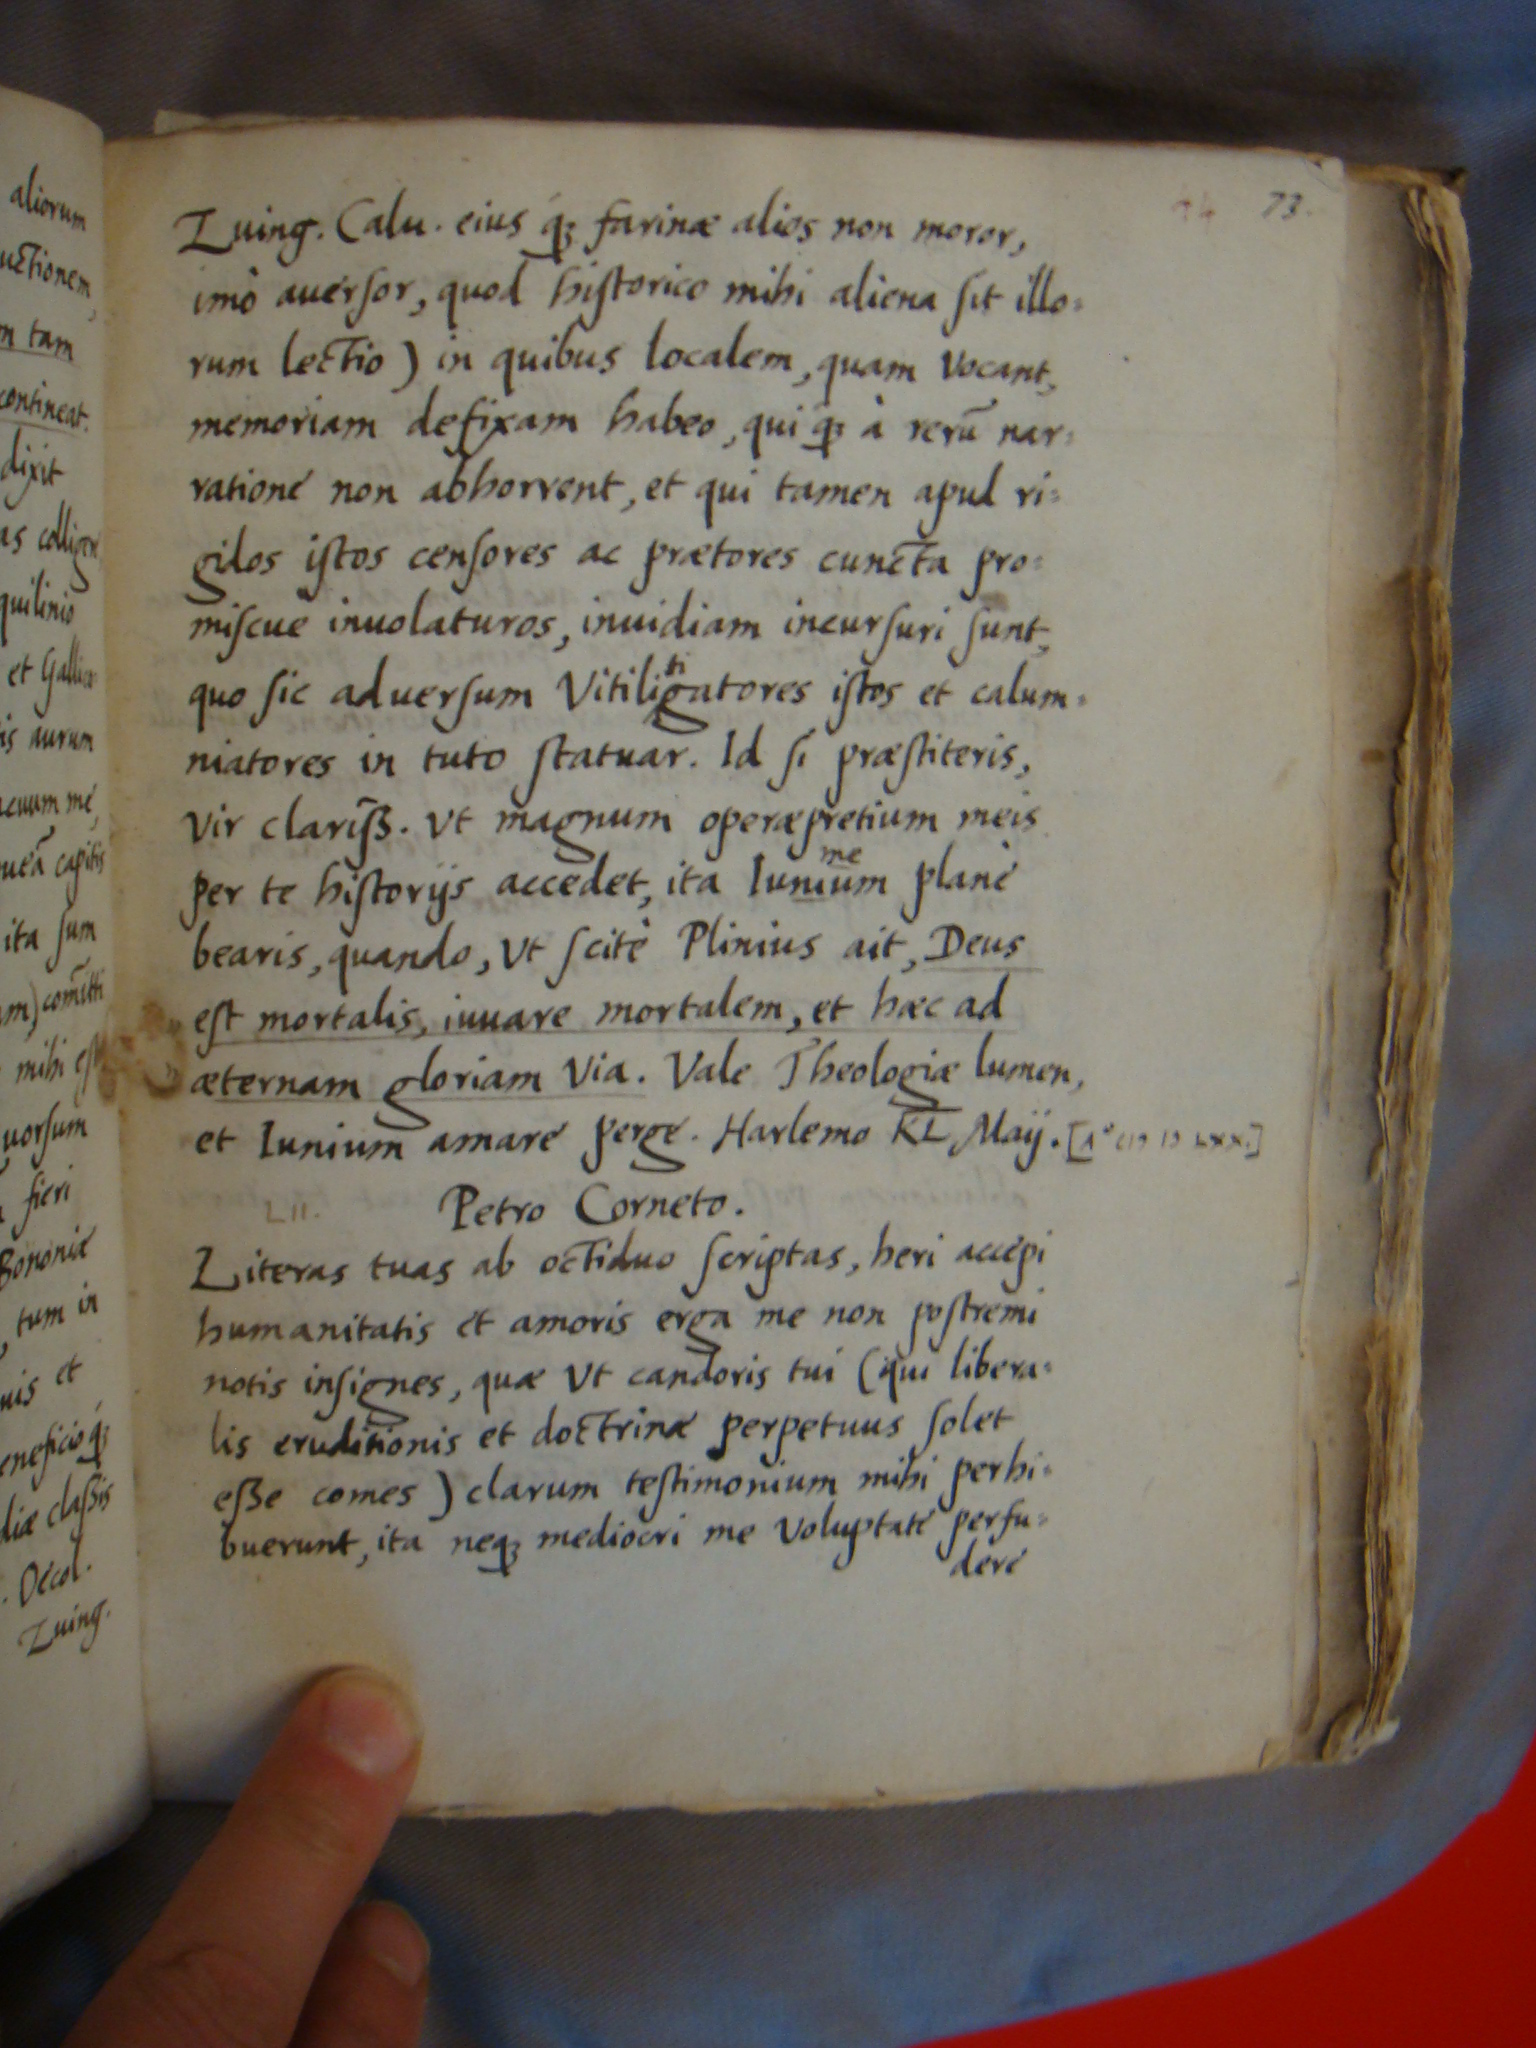 aliorum
uctionem,
m tam
contineat.
dixit
as colligere
quilinio
et Gallicæ
is aurum
acuum me,
capitis
ita sum
am) com̃itti
mihi est
uorsum
fieri
Bononiæ
tum in
uis et
eneficio q́3
diæ claßis
. Oecol.
Zuing.
94 73.
Zuing. Calu. eius q́3 farinæ alios non moror,
imò auersor, quod historico mihi aliena sit illo=
rum lectio) in quibus localem, quam vocant,
memoriam defixam habeo, qui q3 à rerū nar=
ratione non abhorrent, et qui tamen apud ri=
gidos istos censores ac prætores cuncta pro=
miscue inuolaturos, inuidiam incursuri sunt,
ti
quo sic aduersum Vitiligatores istos et calum=
niatores in tuto statuar. Id si præstiteris,
vir clariſß. vt magnum operæpretium meis
me
per te historijs accedet, ita Iunium planè
bearis, quando, vt scitè Plinius ait, Deus
est mortalis, iuuare mortalem, et hæc ad
æternam gloriam via. Vale Theologiæ lumen,
et Iunium amare perge. Harlemo KL Maij. [Aº CIↃ IↃ LXXI.]
LII. Petro Corneto.
Literas tuas ab octiduo scriptas, heri accepi
humanitatis et amoris erga me non postremi
notis insignes, quæ vt candoris tui (qui libera=
lis eruditionis et doctrinæ perpetuus solet
eße comes) clarum testimonium mihi perhi=
buerunt, ita neq3 mediocri me voluptate perfu=
dere